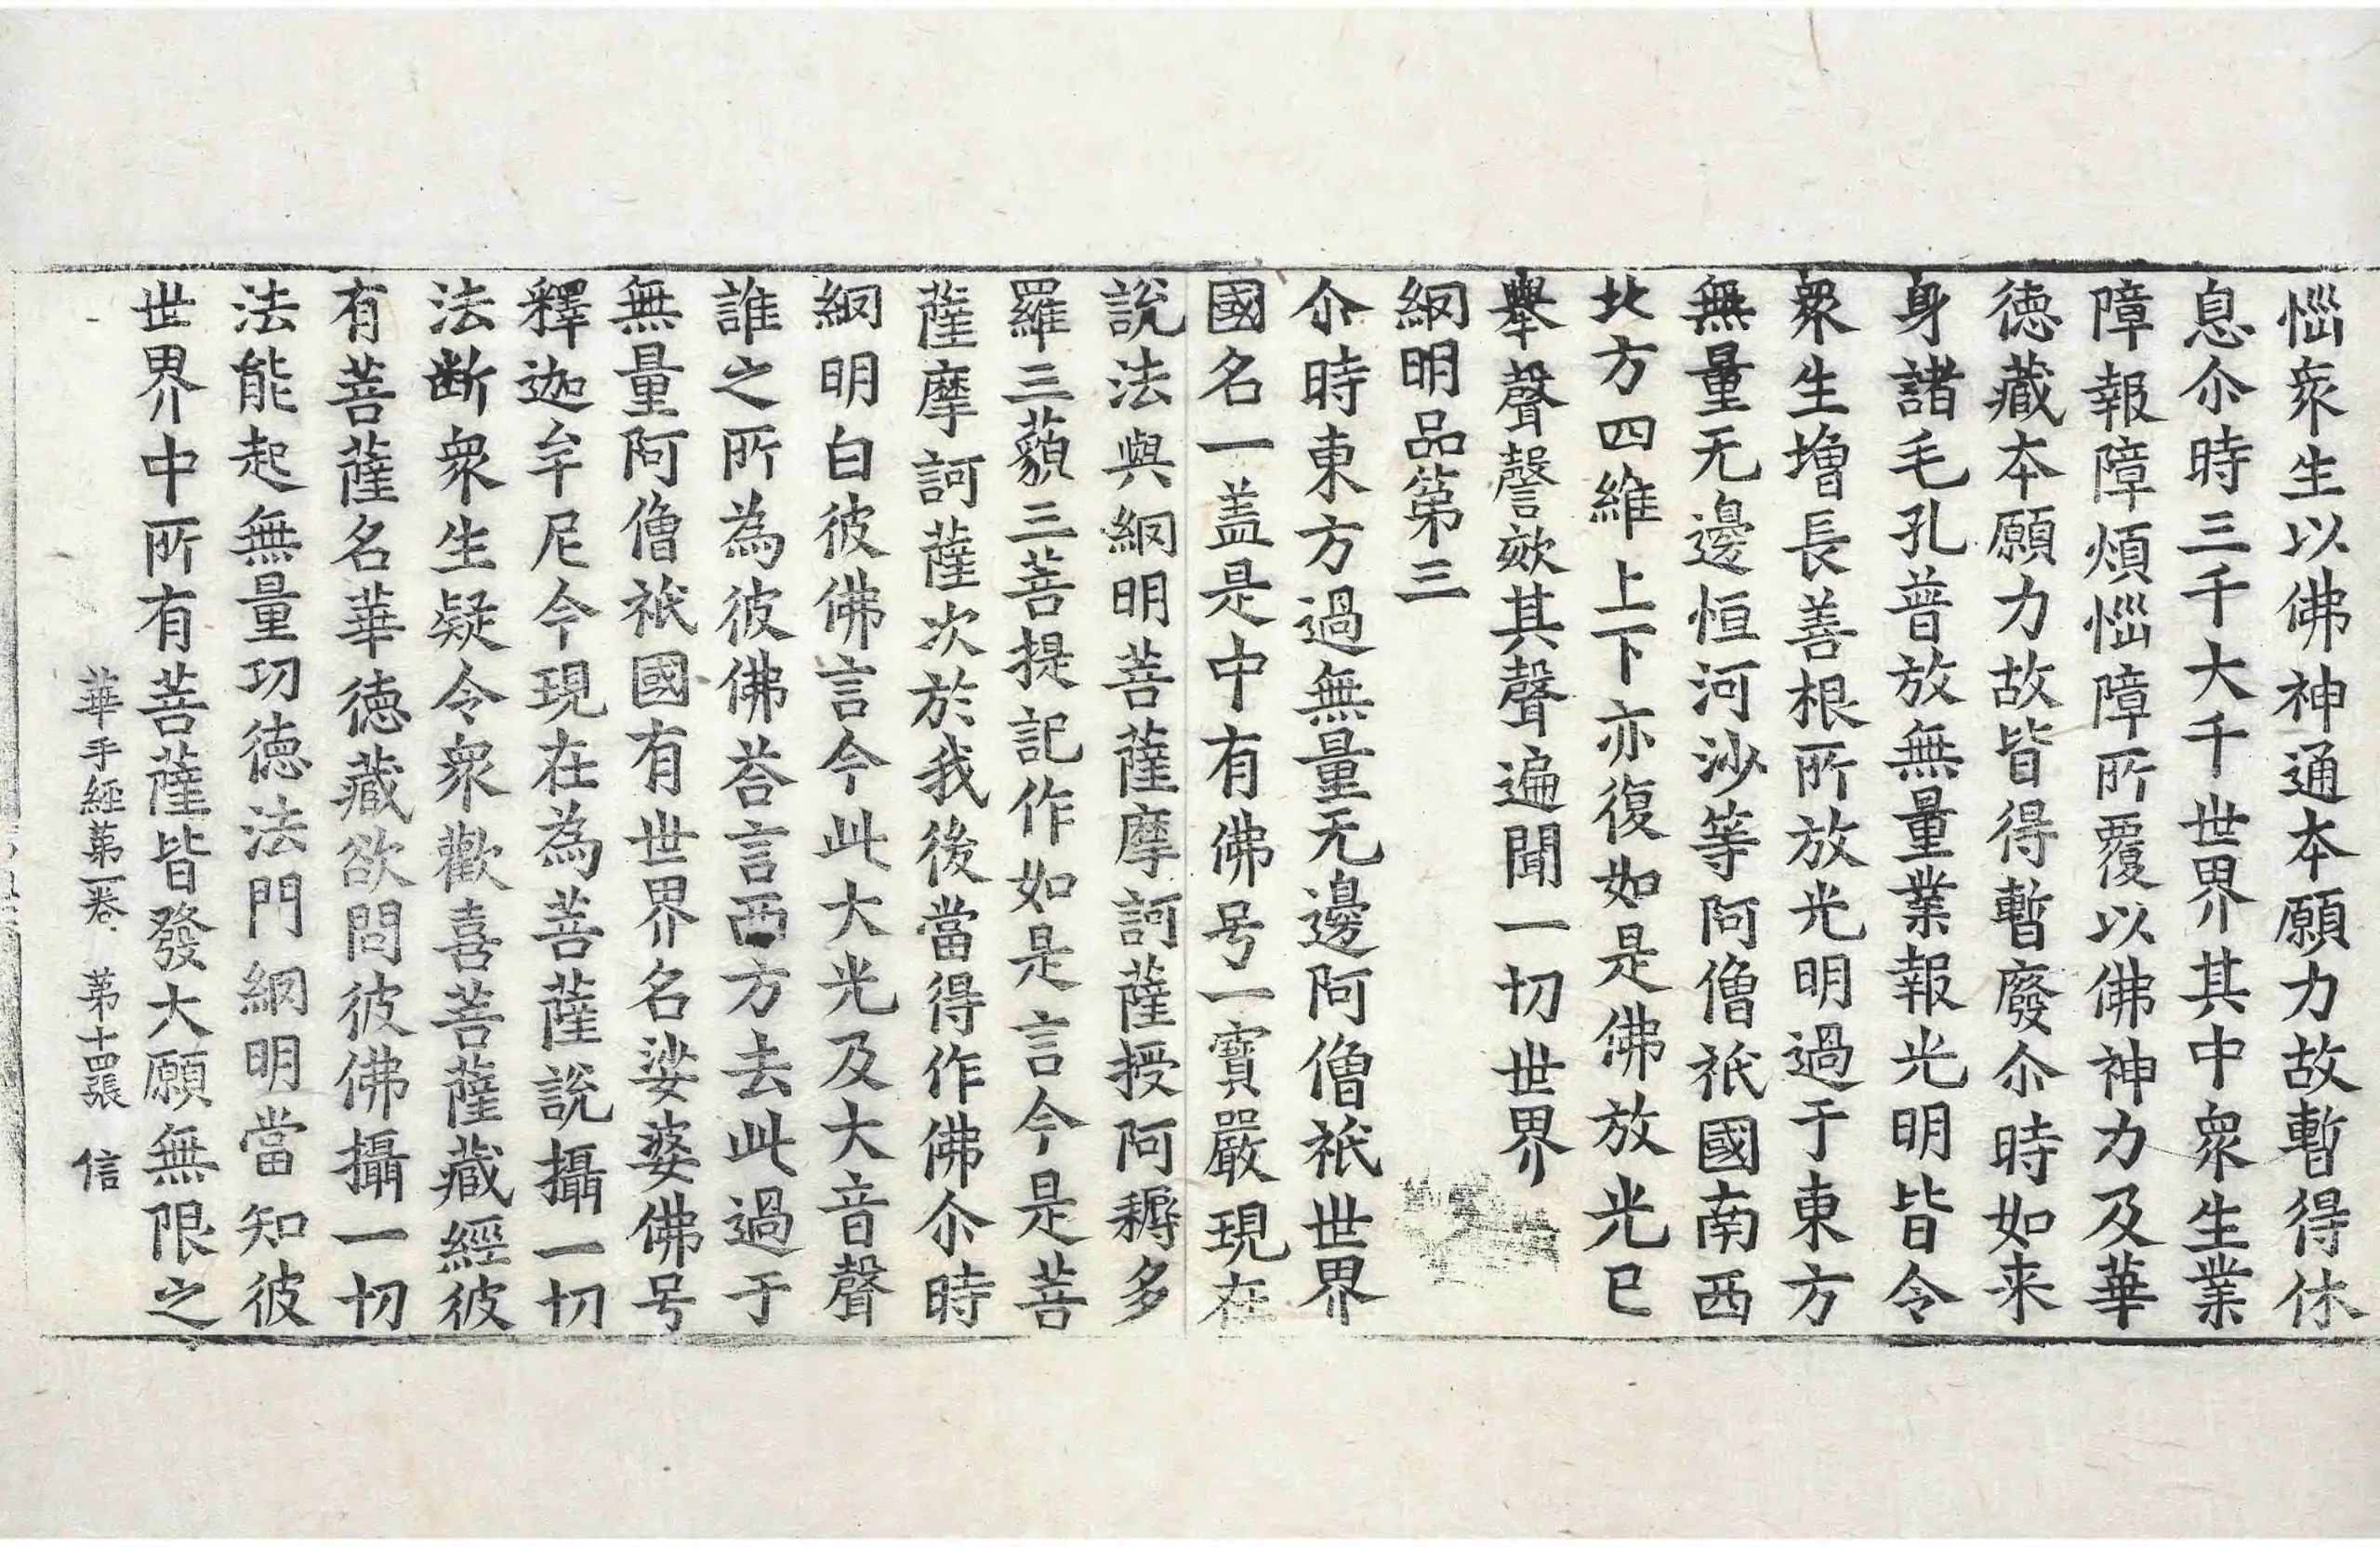 惱衆生以佛神通本願力故暫得休
息尒時三千大千世界其中衆生業
障報障煩惱障所覆以佛神力及華
德藏本願力故皆得暫廢尒時如来
身諸毛孔普放無量業報光明皆令
衆生增長善根所放光明過于東方
無量无邊恒河沙等阿僧祇國南西
北方四維上下亦復如是佛放光已
舉聲謦欬其聲遍聞一切世界
網明品第三
尒時東方過無量无邊阿僧祇世界
國名一盖是中有佛号一寶嚴現在
說法與網明菩薩摩訶薩授阿耨多
羅三藐三菩提記作如是言今是菩
薩摩訶薩次於我後當得作佛尒時
網明白彼佛言今此大光及大音聲
誰之所為彼佛荅言西方去此過于
無量阿僧祇國有世界名娑婆佛号
釋迦牟尼今現在為菩薩說攝一切
法断衆生疑令衆歡喜菩薩藏經彼
有菩薩名華德藏欲問彼佛攝一切
法能起無量功德法門網明當知彼
世界中所有菩薩皆發大願無限之
華手經第一卷 第十四張 信